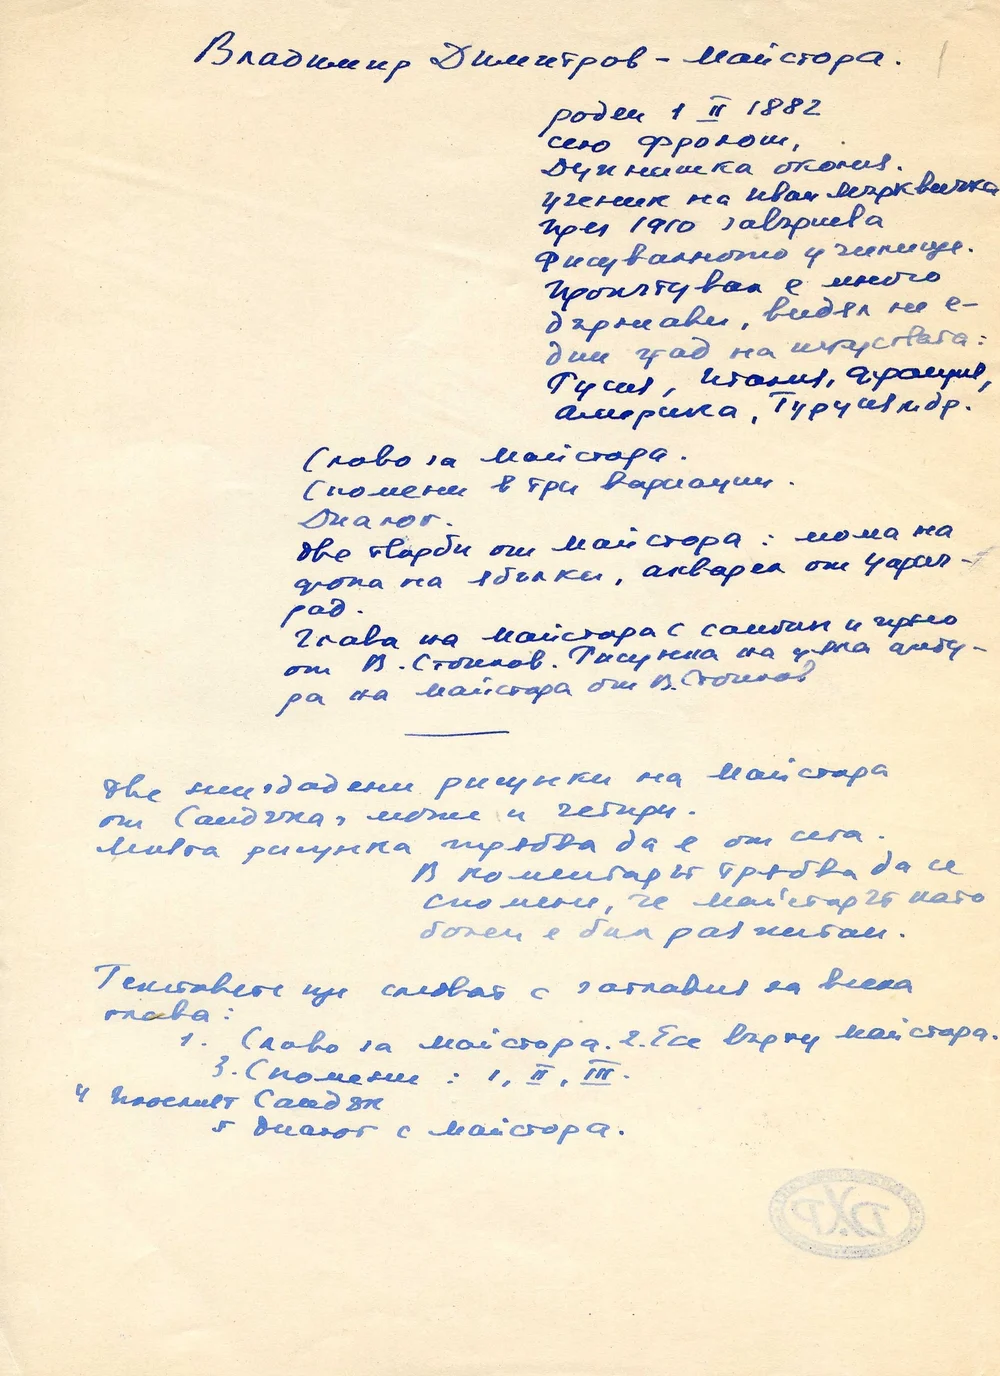 Владимир Димитров - Майстора.
роден 1 II 1882
село Фролош,
Дупнишка околия.
ученик на Иван Мърквичка
през 1910 завършва
Рисувалното училище.
Пропътувал е много
държави, видял не е-
дин град на изкуствата:
Русия, Италия, Франция,
Америка, Турция и др.
Слово за Майстора.
Спомени в три вариации.
Диалог.
Две творби от Майстора: мома на
фона на ябълки, акварел от Цариг-
рад.
Глава на Майстора с молив и
от В. Стоилов. Рисунка на цяла фигу-
ра на Майстора от В. Стоилов
Две неиздадени рисунки на Майстора
от Сандъка, може и четири.
Моята рисунка трябва да е от сега.
В коментарът трябва да се
спомене, че Майсторът като
болен е бил разпитан.
Текстовете ще следват с заглавия за всяка
глава:
1. Слово за Майстора. 2. Есе върху Майстора.
3. Спомени: I, II, III.
4 Сандък
5 Диалог с Майстора.